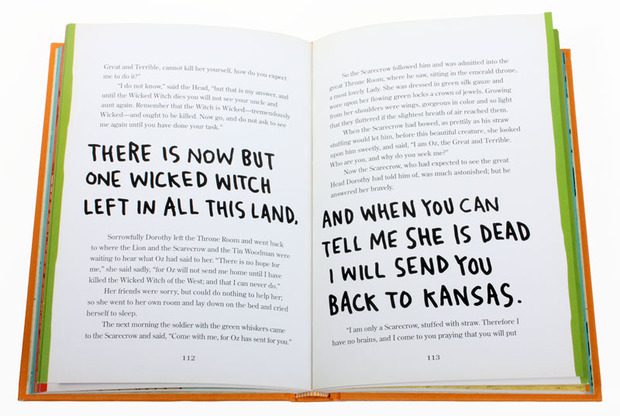 Great and Terrible, cannot kill her yourself, how do you expect
me to do it?"
"I do not know," said the Head, "but that is my answer, and
until the Wicked Witch dies you will not see your uncle and
aunt again. Remember that the Witch is Wicked—tremendously
Wicked—and ought to be killed. Now go, and do not ask to see
me again until you have done your task."
THERE IS NOW BUT
ONE WICKED WITCH
LEFT IN ALL THIS LAND,
Sorrowfully Dorothy left the Throne Room and went back
to where the Lion and the Scarecrow and the Tin Woodman were
waiting to hear what Oz had said to her. "There is no hope for
me," she said sadly, "for Oz will not send me home until I have
killed the Wicked Witch of the West; and that I can never do."
Her friends were sorry, but could do nothing to help her;
so she went to her own room and lay down on the bed and cried
herself to sleep.
The next morning the soldier with the green whiskers came
to the Scarecrow and said, "Come with me, for Oz has sent for you."
112
So the Scarecrow followed him and was admitted into the
great Throne Room, where he saw, sitting in the emerald throne,
a most lovely Lady. She was dressed in green silk gauze and
wore upon her flowing green locks a crown of jewels. Growing
from her shoulders were wings, gorgeous in color and so light
that they fluttered if the slightest breath of air reached them.
When the Scarecrow had bowed, as prettily as his straw
stuffing would let him, before this beautiful creature, she looked
upon him sweetly, and said, "I am Oz, the Great and Terrible.
Who are you, and why do you seek me?"
Now the Scarecrow, who had expected to see the great
Head Dorothy had told him of, was much astonished; but he
answered her bravely.
AND WHEN YOU CAN
TELL ME SHE IS DEAD
I WILL SEND YOU
BACK TO KANSAS.
"I am only a Scarecrow, stuffed with straw. Therefore I
have no brains, and I come to you praying that you will put
113